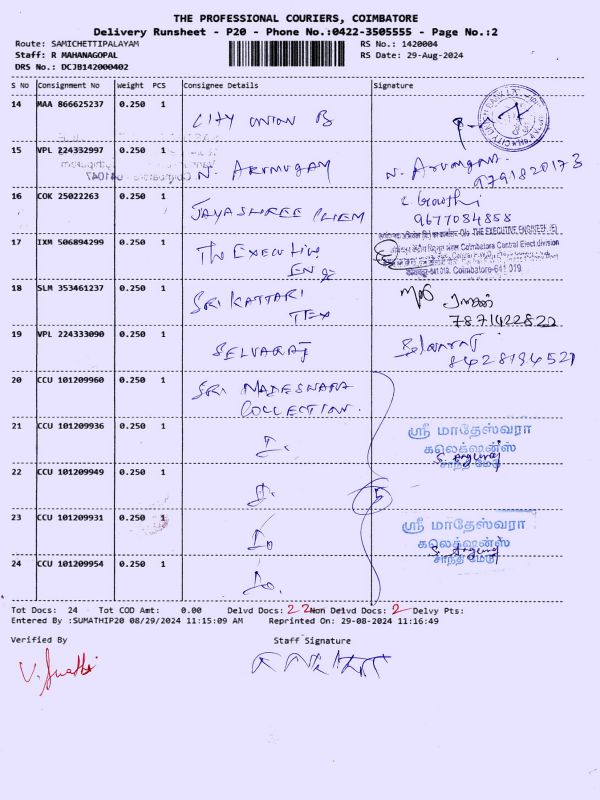 THE PROFESSIONAL COURIERS, COIMBATORE
Delivery Runsheet - P20 - Phone No.:0422-3505555 - Page No.:2
Route: SAMICHETTIPALAYAM
RS No.: 1420004
Staff: R MAHANAGOPAL
RS Date: 29-Aug-2024
DRS No.: DCJB142000402
S No Consignment No Weight PCS Consignee Details Signature
14 MAA 866625237 0.250 1 CITY UNION B
15 VPL 224332997 0.250 1 N. ARUMUGAM N. Arumugam 9791820173
16 COK 25022263 0.250 1 JAYASHREE CHEM 9677084858
17 IXM 506894299 0.250 1 THE EXECUTIVE ENGR
O/o. THE EXECUTIVE ENGINEER (E)
Coimbatore Central Elect division
Coimbatore-641 019.
18 SLM 353461237 0.250 1 SRI KATTARI TEX 7871422822
19 VPL 224333090 0.250 1 SELVARAJ Selvaraj 8428194521
20 CCU 101209960 0.250 1 SRI MADESWARA COLLECTION.
21 CCU 101209936 0.250 1
ஸ்ரீ மாதேஸ்வரா
கலெக்ஷன்ஸ்
சாந்தி மேடு
22 CCU 101209949 0.250 1
5
23 CCU 101209931 0.250 1 Do
ஸ்ரீ மாதேஸ்வரா
கலெக்ஷன்ஸ்
சாந்தி மேடு
24 CCU 101209954 0.250 1 Do.
Tot Docs: 24 Tot COD Amt: 0.00 Delvd Docs: 22 Non Delvd Docs: 2 Delvy Pts:
Entered By :SUMATHIP20 08/29/2024 11:15:09 AM Reprinted On: 29-08-2024 11:16:49
Verified By Staff Signature